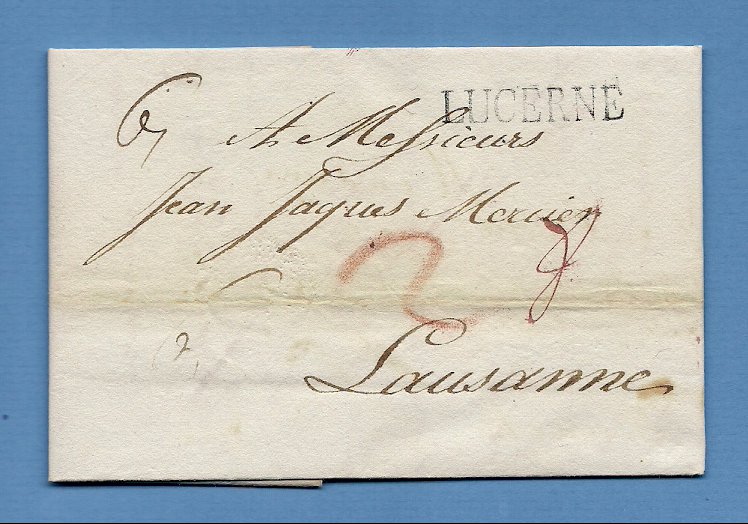 LUCERNE
6, A Messieurs
Jean Jaques Mercier
2
Lausanne